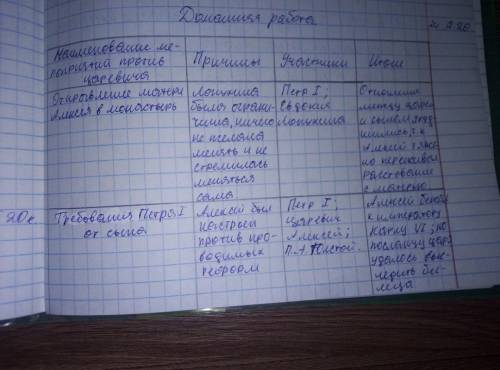 Домашняя работа
Наименование ме-
роприятий против
царевича
Причины
Участники
Итог
Отправление матери
Алексея в монастырь
Лопухина
была ограни-
чена, ничего
не желала
менять и не
стремилась
меняться
сама
Петр I;
Евдокия
Лопухина
Отношения
между царем
и сыном
Алексей
но переживал
расставание
с матерью
Требования Петра I
от сына
Алексей был
настроен
против про-
водимых
реформ
Петр I;
царевич
Алексей;
П.А Толстой.
Алексей бежал
к императору
Карлу VI; но
посланцу царя
удалось выс-
ледить бег-
леца